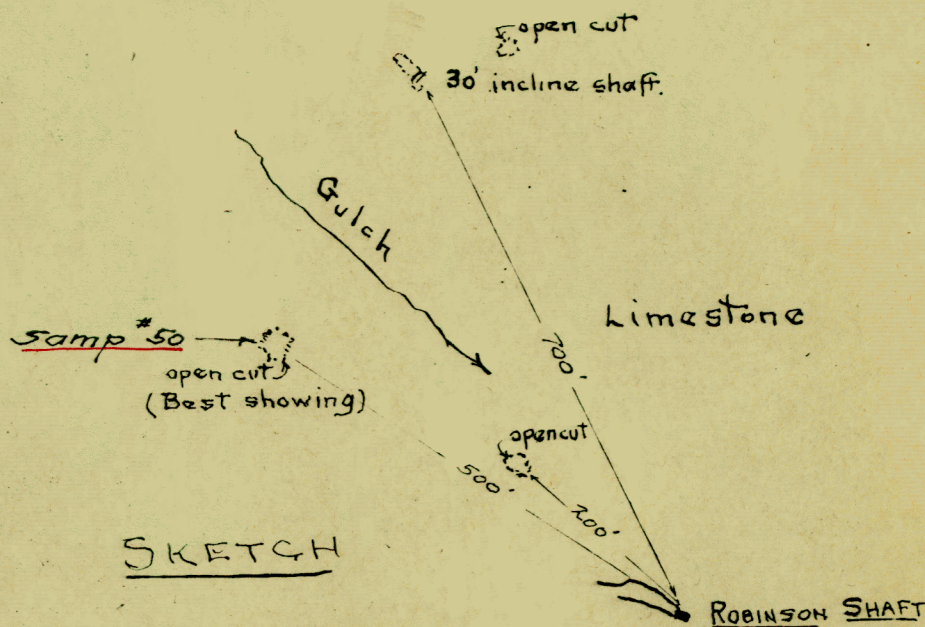 open cut
30' incline shaft.
Gulch
Limestone
700'
Samp #50
open cut
(Best showing)
opencut
500'
200'
SKETCH
ROBINSON SHAFT